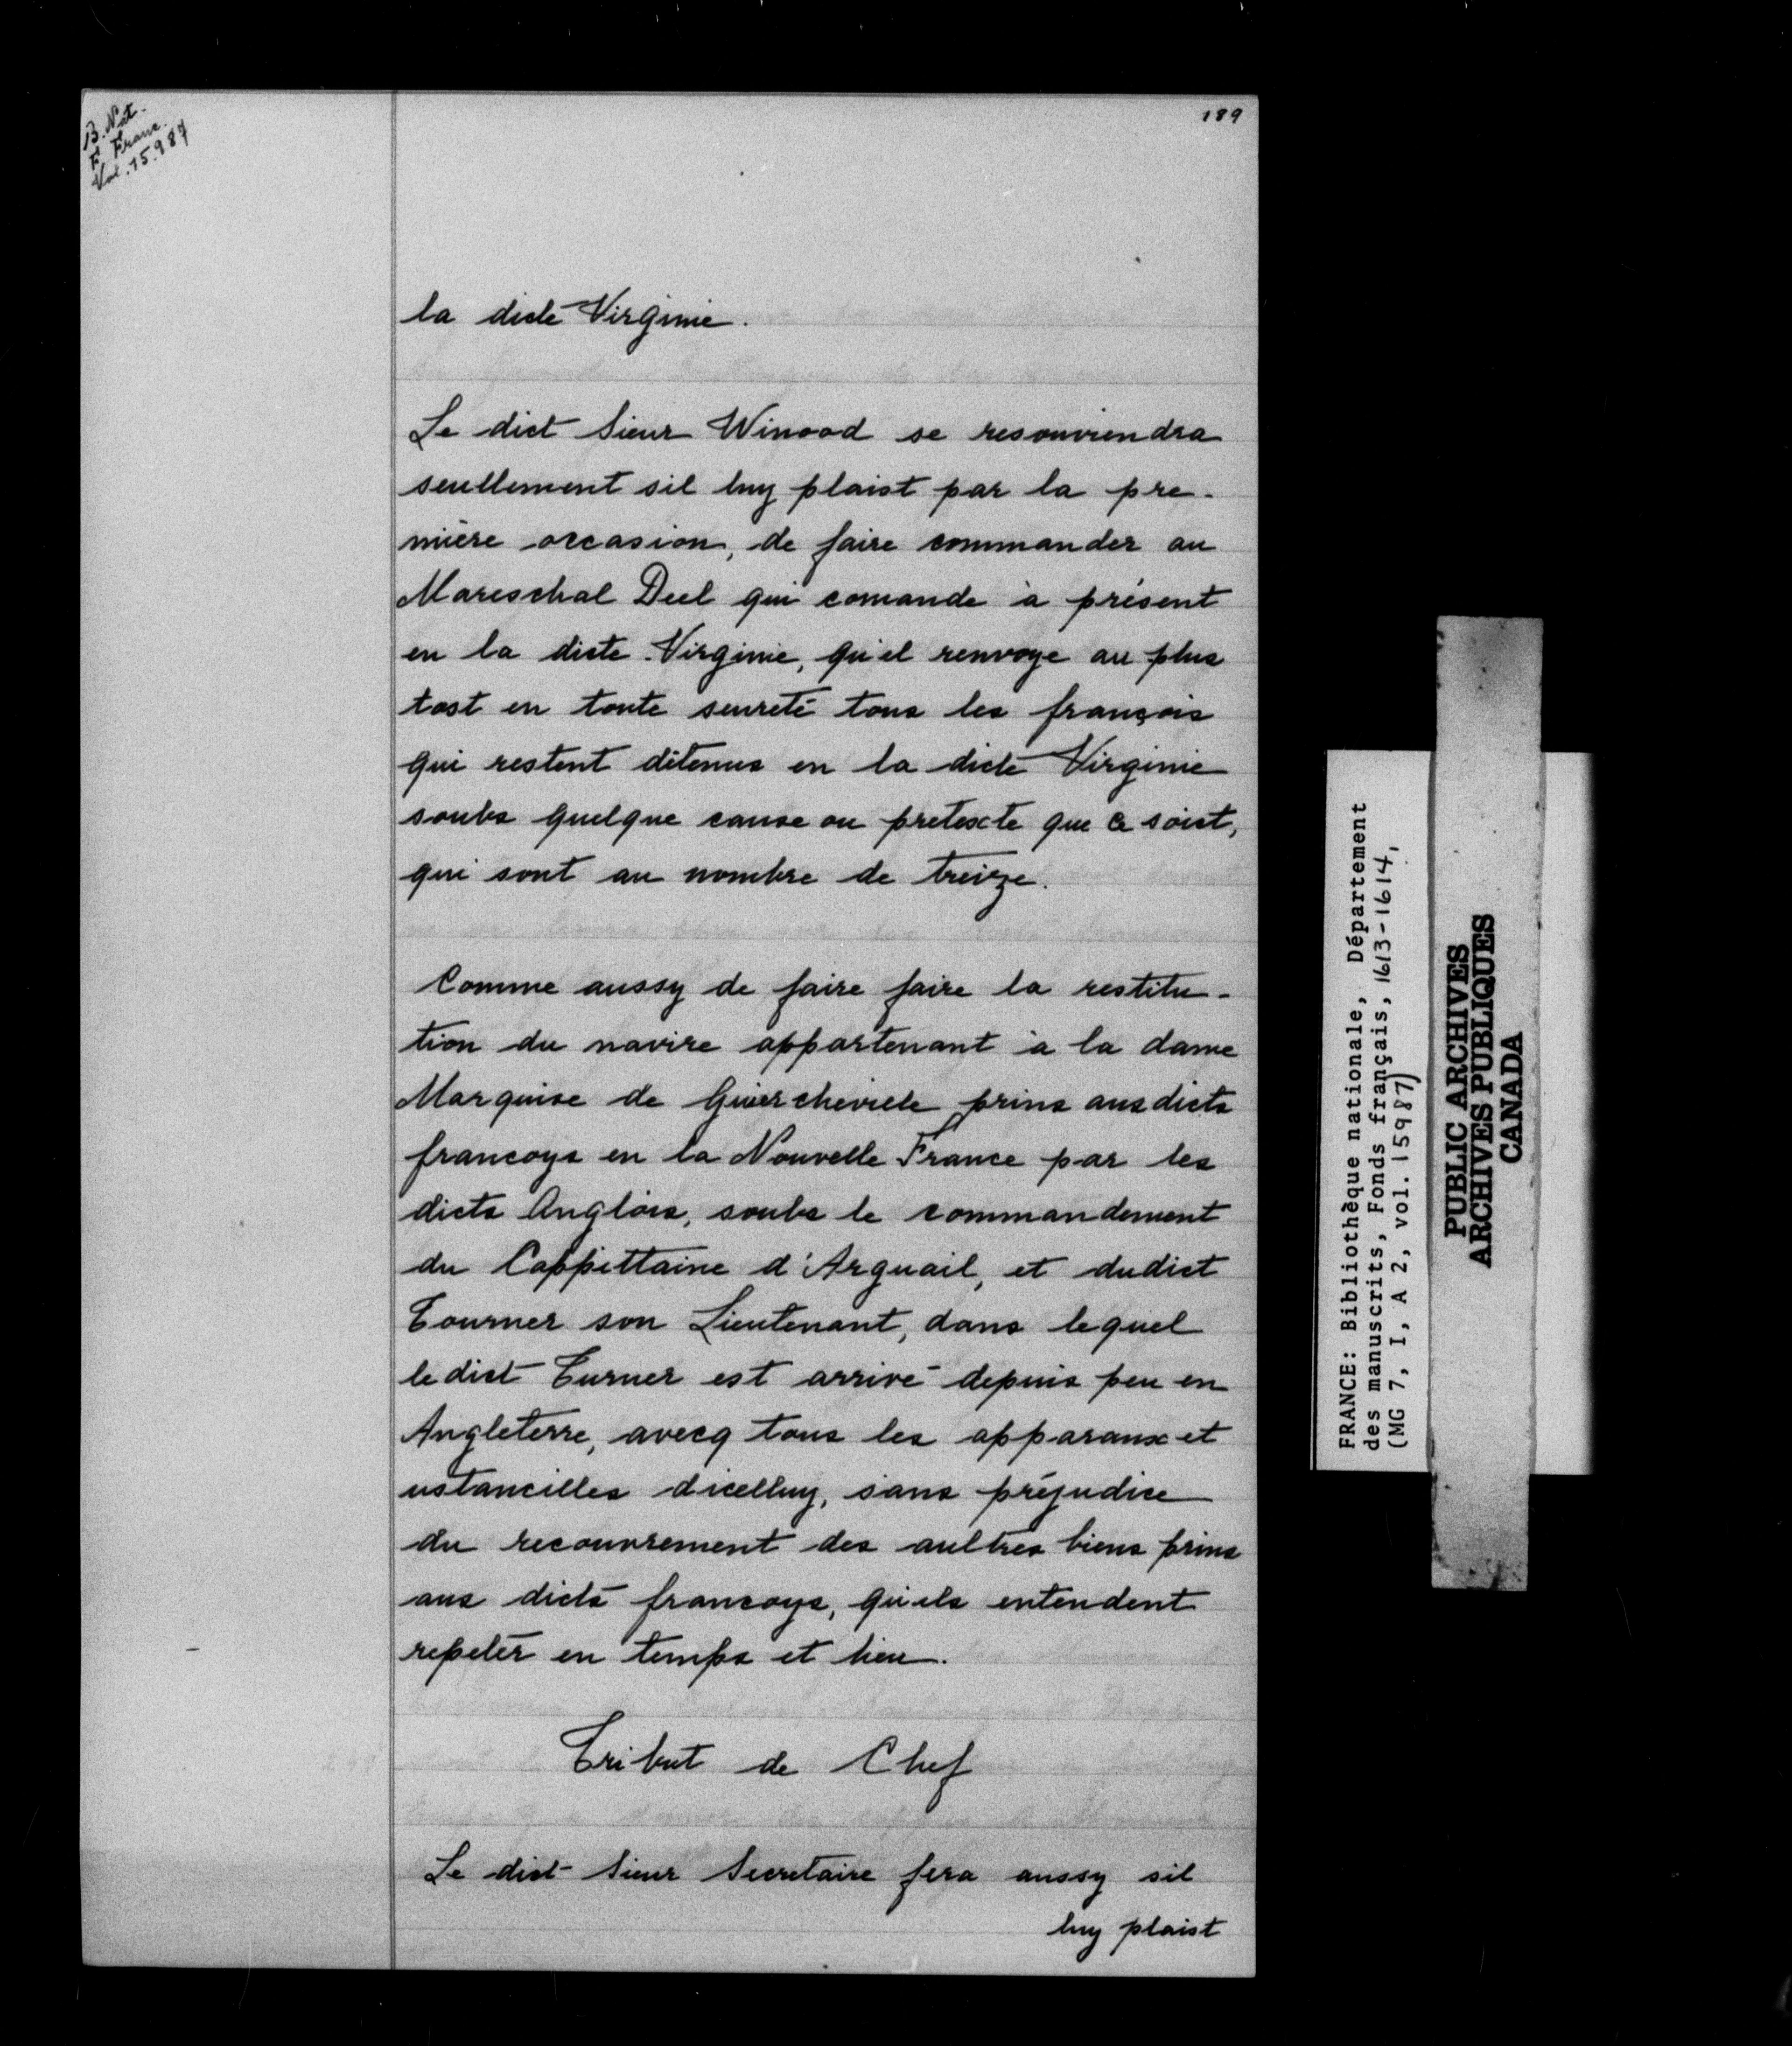 B. Nat.
F. Franc.
Vol. 15.987
189
la dicte Virginie.
Le dict Sieur Winood se resouviendra
seullement sil luy plaist par la pre-
mière occasion, de faire commander au
Mareschal Deel qui comande à présent
en la dicte Virginie, qu'il renvoye au plus
tost en toute seureté tous les françois
qui restent détenus en la dicte Virginie
soubs quelque cause ou pretexte que ce soist,
qui sont au nombre de treize.
Comme aussy de faire faire la restitu-
tion du navire appartenant à la dame
Marquise de Guiercheviele prins aus dicts
francoys en la Nouvelle France par les
dicts Anglois, soubs le commandement
du Cappittaine d'Arguail, et dudict
Tourner son Lieutenant, dans lequel
le dict Turner est arrivé depuis peu en
Angleterre, avecq tous les apparaux et
ustancilles dicelluy, sans préjudice
du recouvrement des aultres biens prins
aus dicts francoys, qu'ils entendent
repeter en temps et lieu.
Tribut de Chef
Le dict Sieur Secretaire fera aussy sil
luy plaist
FRANCE: Bibliothèque nationale, Département
des manuscrits, Fonds français, 1613-1614,
(MG 7, I, A 2, vol. 15987)
PUBLIC ARCHIVES
ARCHIVES PUBLIQUES
CANADA